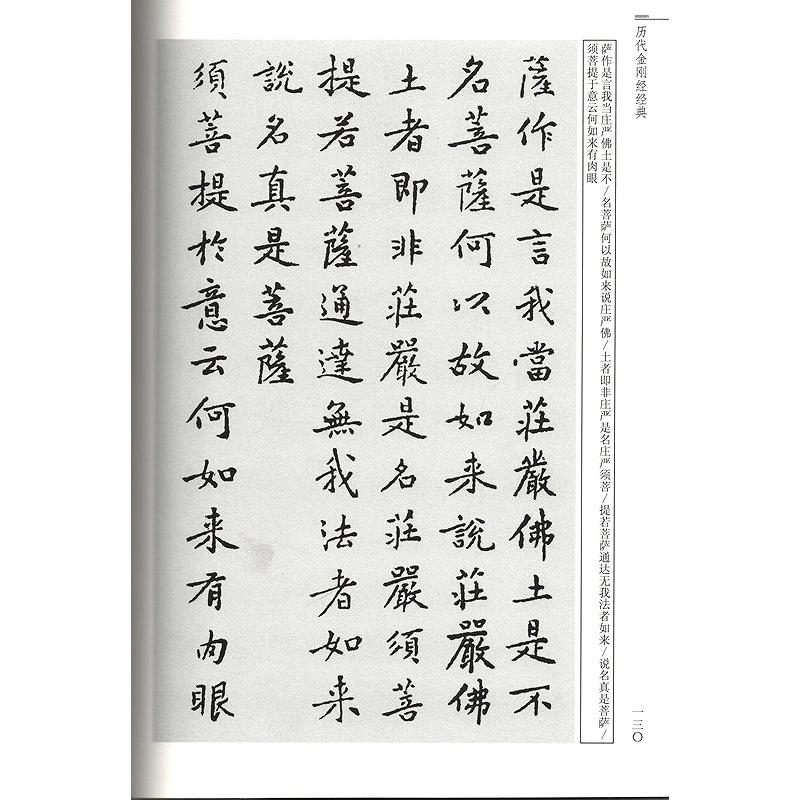 历代金刚经经典
萨作是言我当庄严佛土是不/名菩萨何以故如来说庄严佛/土者即非庄严是名庄严须菩/提若菩萨通达无我法者如来/说名真是菩萨/
须菩提于意云何如来有肉眼
薩作是言我當莊嚴佛土是不
名菩薩何以故如来說莊嚴佛
土者即非莊嚴是名莊嚴須菩
提若菩薩通達無我法者如来
說名真是菩薩
須菩提於意云何如来有肉眼
一三〇